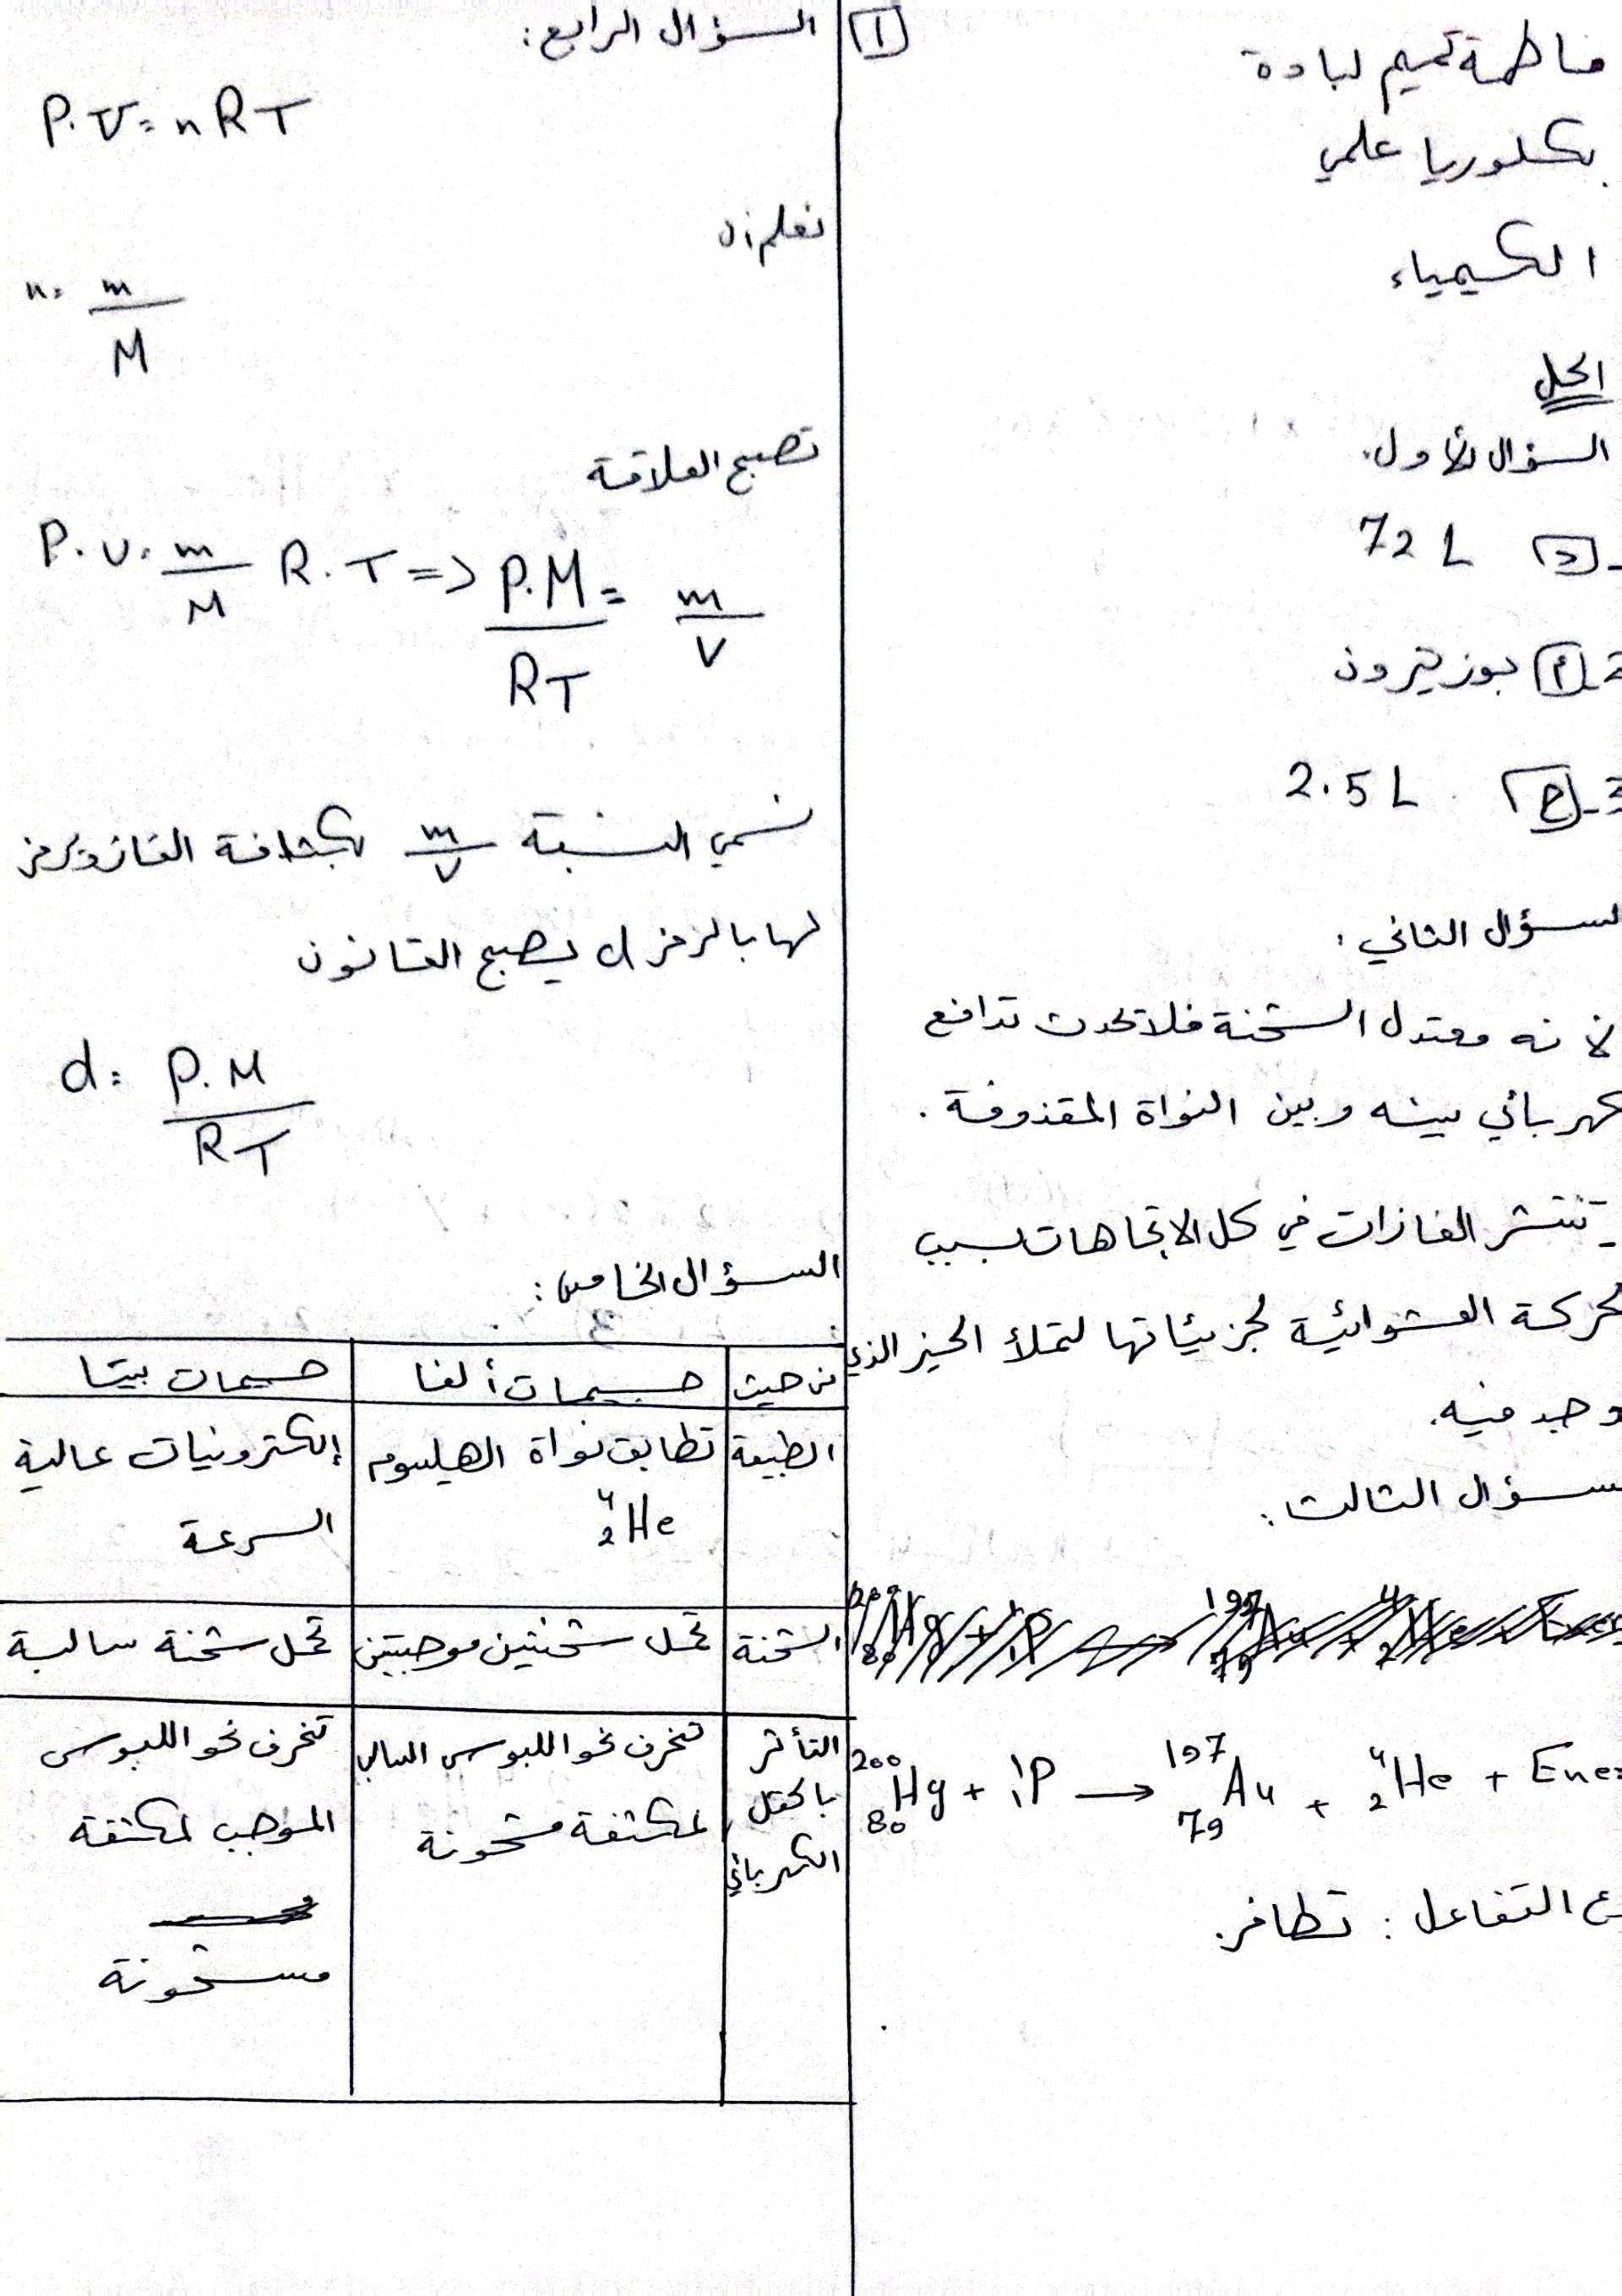 فاطمة تميم لبادة
بكلوريا علمي
الكيمياء
الحل
السؤال الأول.
72 L
2- أ بوزيترون
ج- 2.5 L
لسؤال الثاني:
لأنه معتدل الشحنة فلا تحدث تدافع
كهربائي بينه وبين النواة المقذوفة.
- تنتشر الغازات في كل الاتجاهات بسبب
لحركة العشوائية لجزيئاتها لتملأ الحيز الذي
وجد فيه.
سؤال الثالث:
²⁰⁰₈₀Hg + ¹₁P → ¹⁹⁷₇₉Au + ⁴₂He + Ene
ع التفاعل: تطافر.
1
السؤال الرابع:
P.V = nRT
نعلم أن
n = m/M
تصبح العلاقة
P.V = m/M R.T => P.M/RT = m/V
نسمي النسبة m/V بكثافة الغاز ويرمز
لها بالرمز d يصبح القانون
d = P.M/RT
السؤال الخامس:
من حيث جسيمات ألفا جسيمات بيتا
الطبيعة تطابق نواة الهيليوم ⁴₂He إلكترونيات عالية السرعة
الشحنة تحمل شحنتين موجبتين تحمل شحنة سالبة
التأثر بالحقل الكهربائي تنحرف نحو اللبوس السالب لمكثفة مشحونة تنحرف نحو اللبوس الموجب لمكثفة مشحونة